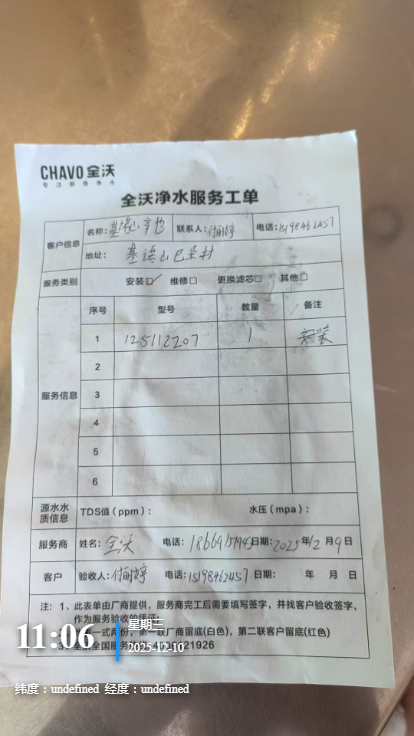 CHAVO 全沃
专注厨房净水
全沃净水服务工单
客户信息 名称: 联系人: 付丽婷 电话: 15198462457
地址:
服务类别 安装☑ 维修□ 更换滤芯□ 其他□
服务信息 序号 型号 数量 备注
1 125112207 1 安装
2
3
4
5
6
源水水质信息 TDS值(ppm): 水压(mpa):
服务商 姓名: 全沃 电话: 日期: 2025年12月9日
客户 验收人: 付丽婷 电话: 15198462457 日期: 年 月 日
注: 1、此表单由厂商提供,服务商完工后需要填写签字,并找客户验收签字,
作为服务验收的凭证;
一式两份,第一联厂商留底(白色),第二联客户留底(红色)
全国服务 21926
11:06 星期三
2025-12-10
纬度:undefined 经度:undefined